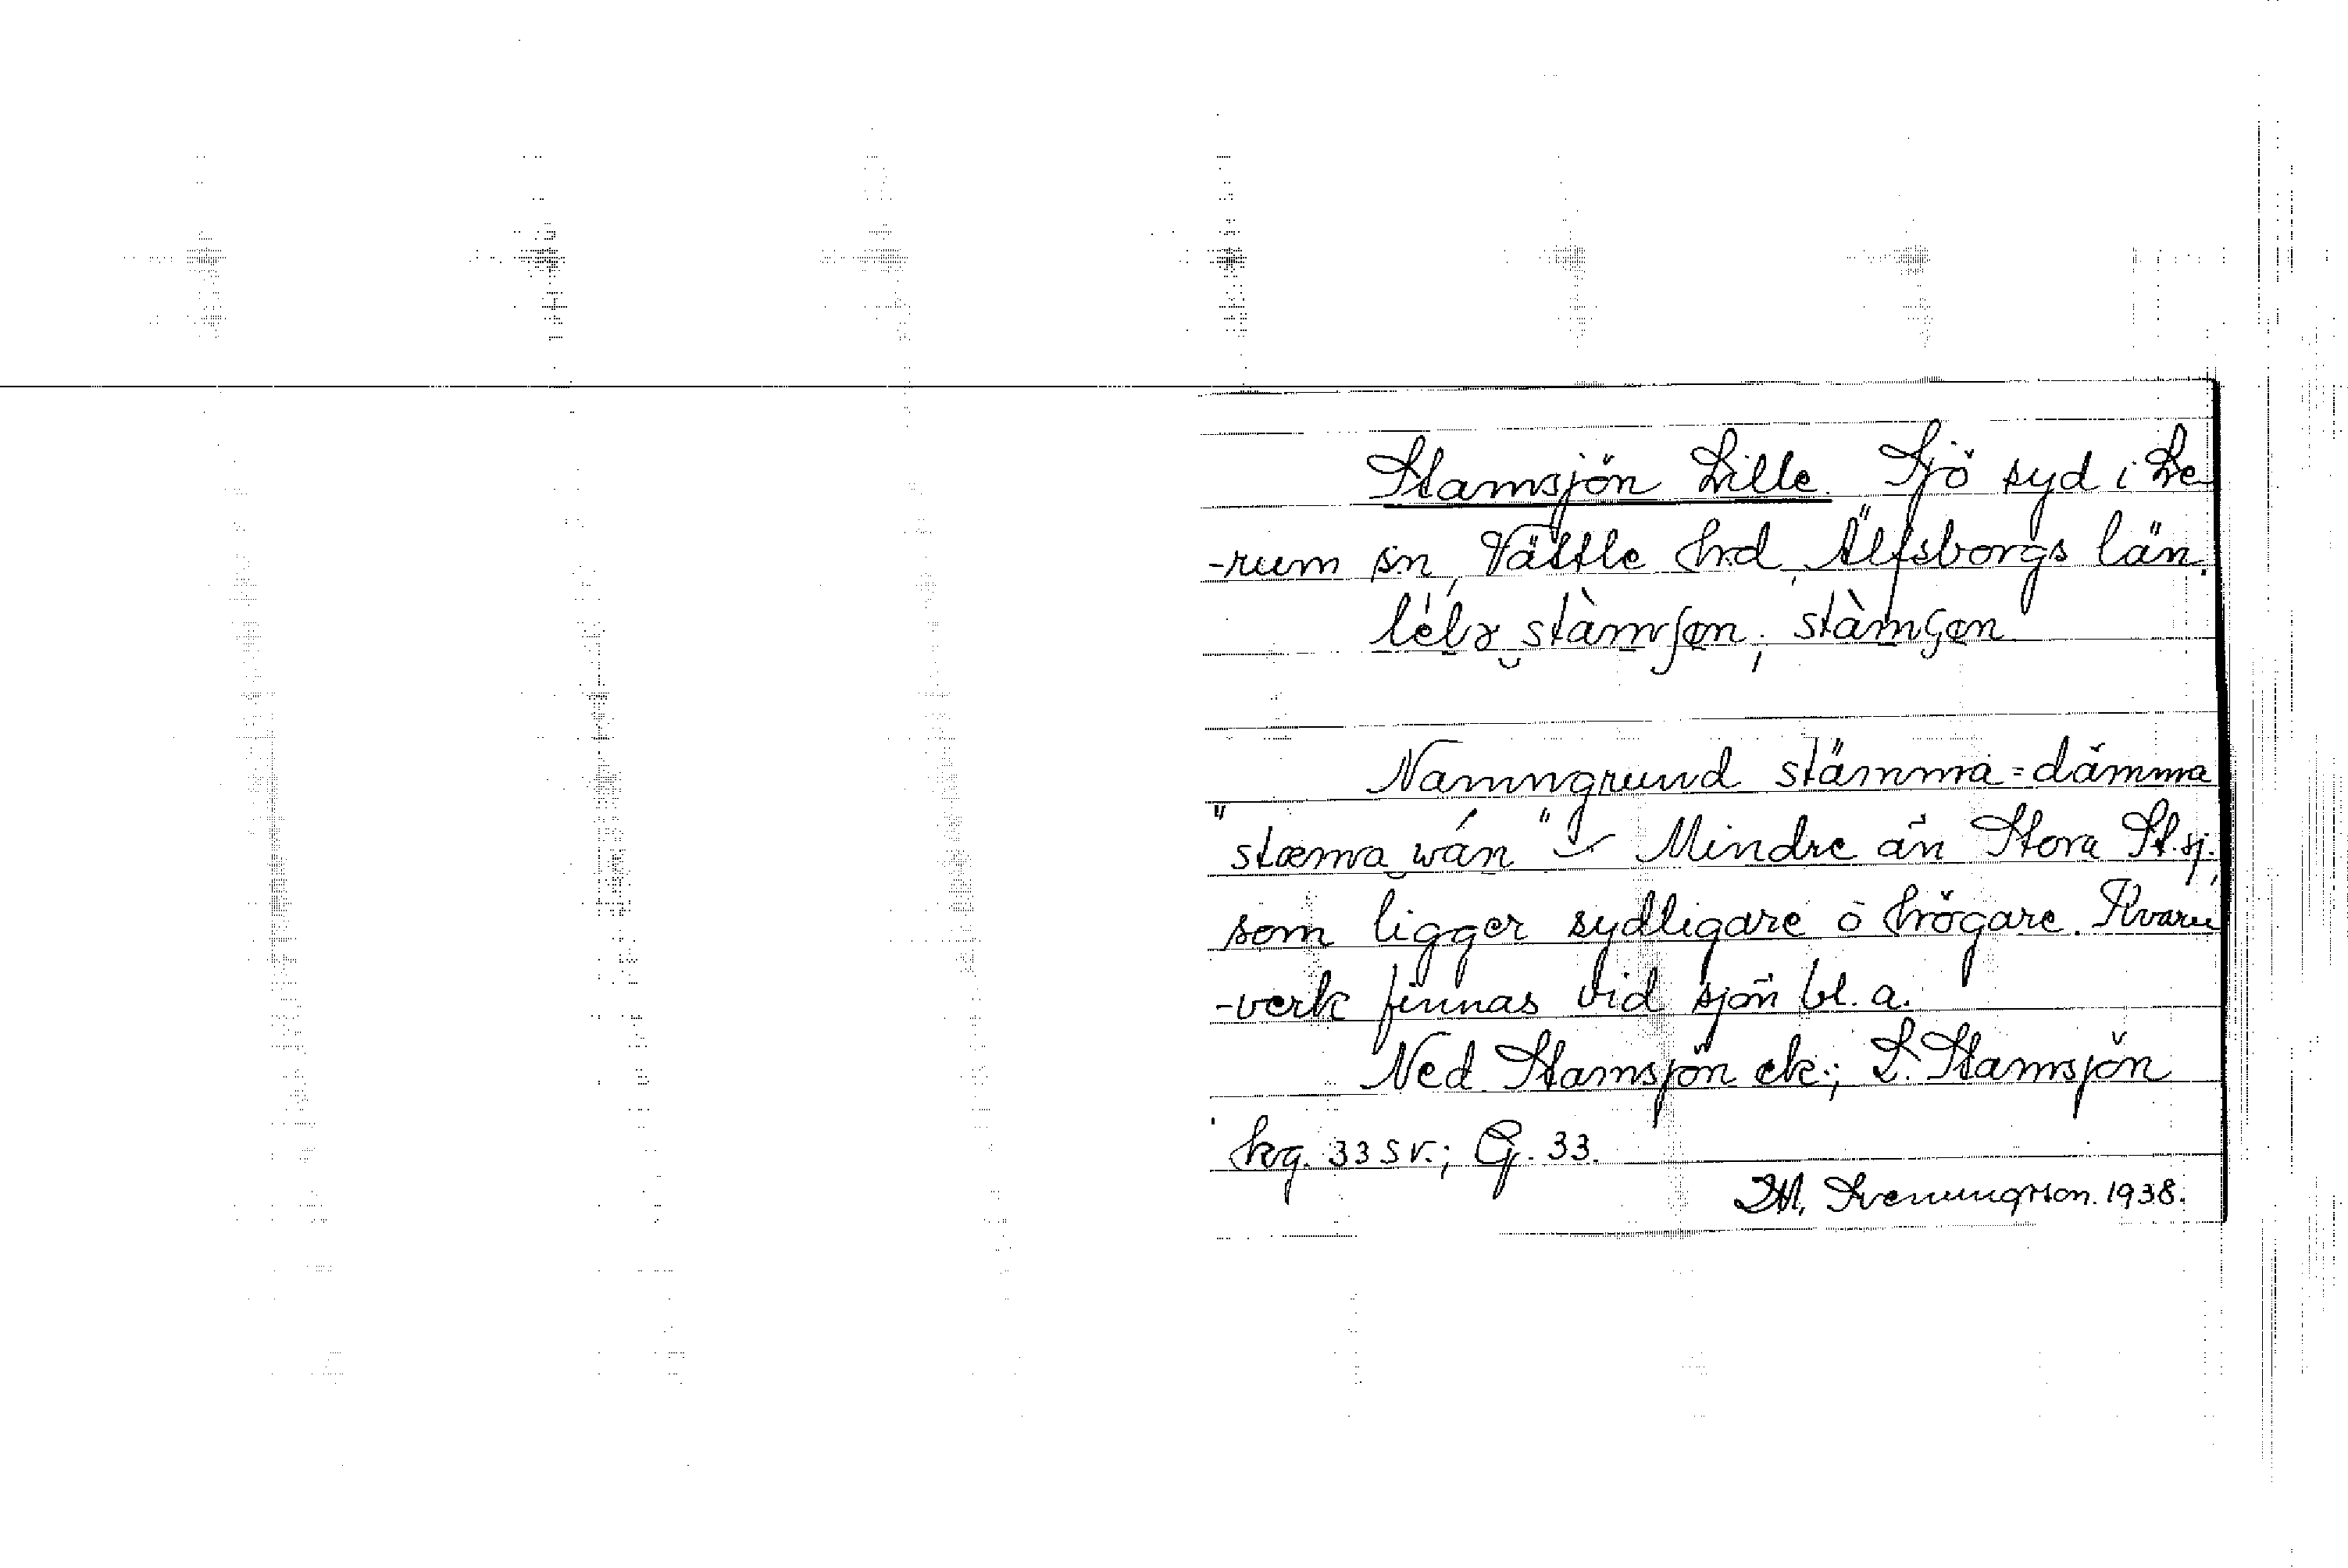 Stamsjön Lille. Sjö syd i Le
-rum sn, Vättle hrd, Älfsborgs län.
stàmsjøn; stàmçøn
Namngrund stämma = dämma
"stæma wán" – Mindre än Stora St.sj.,
som ligger sydligare o högare. Kvarn
-verk finnas vid sjön bl. a.
Ned. Stamsjön ek.; L. Stamsjön
kg. 33 SV.; Gj. 33.
Sveningson. 1938.